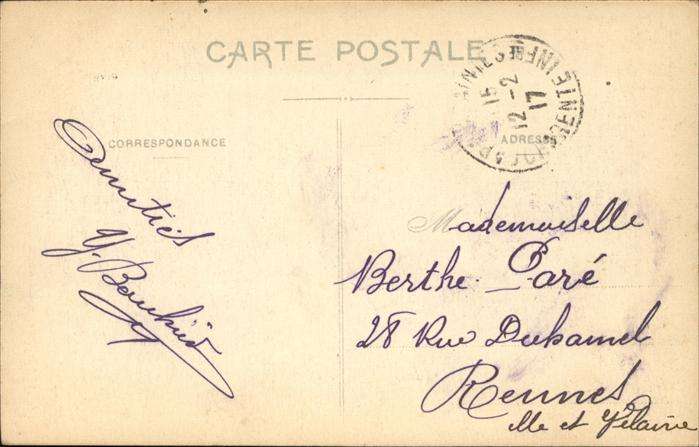 CARTE POSTALE
CORRESPONDANCE
ADRESSE
Amitiés
Y.
15
12-2
17
CHARENTE INFRE
Mademoiselle
Berthe Paré
28 Rue Duhamel
Rennes
Ille et Vilaine